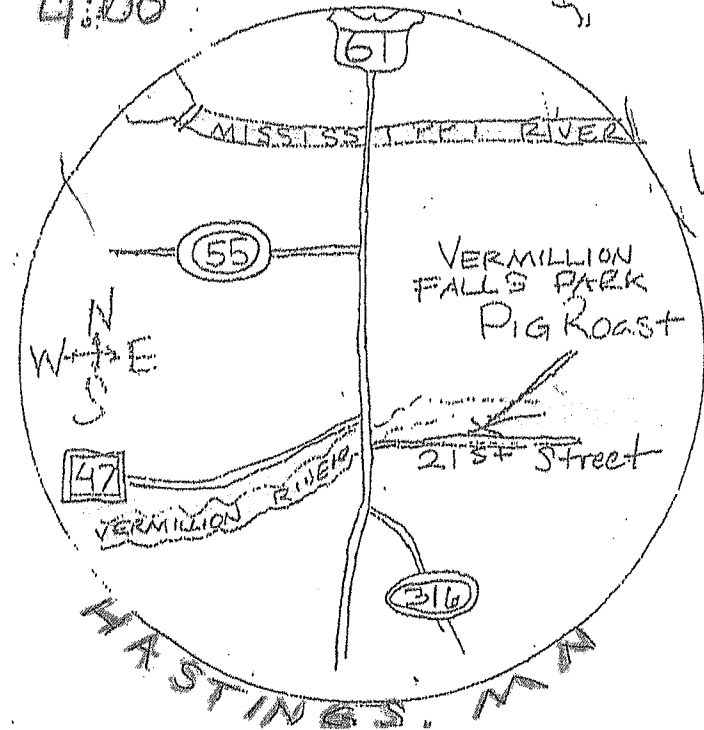 4:00
61
MISSISSIPPI RIVER
55
VERMILLION
FALLS PARK
PIG ROAST
N
W E
S
21st Street
47
VERMILLION RIVER
316
HASTINGS, MN